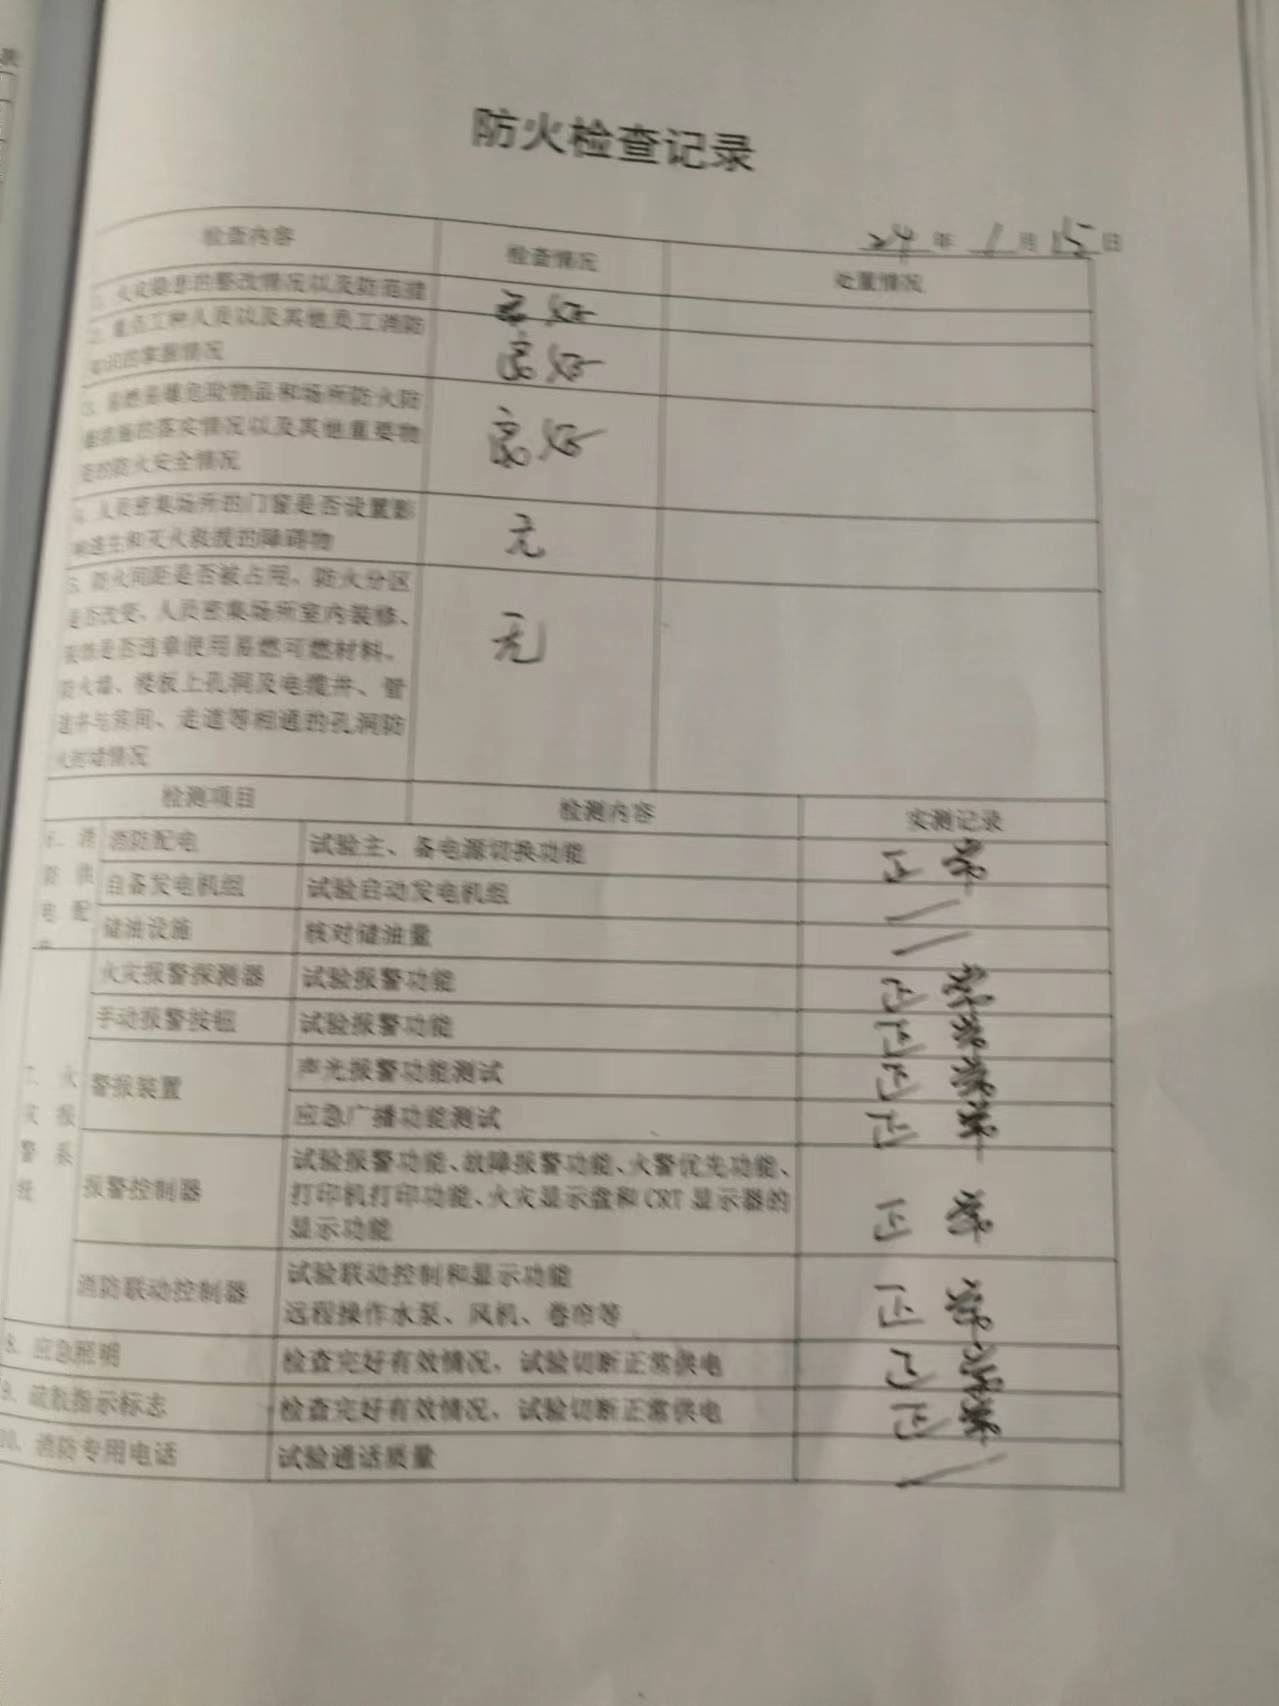 防火检查记录
24年 1月 15日
检查内容 检查情况 处置情况
1、火灾隐患的整改情况以及防范措 良好
2、重点工种人员以及其他员工消防
知识的掌握情况 良好
3、易燃易爆危险物品和场所防火防
爆措施的落实情况以及其他重要物
资的防火安全情况 良好
4、人员密集场所的门窗是否设置影
响逃生和灭火救援的障碍物 无
5、防火间距是否被占用，防火分区
是否改变，人员密集场所室内装修、
装饰是否违章使用易燃可燃材料，
防火墙、楼板上孔洞及电缆井、管
道井与房间、走道等相通的孔洞防
火封堵情况 无
检测项目 检测内容 实测记录
6、消
防供
电配
消防配电 试验主、备电源切换功能 正常
自备发电机组 试验启动发电机组 /
储油设施 核对储油量 /
7、火
灾报
警系
统
火灾报警探测器 试验报警功能 正常
手动报警按钮 试验报警功能 正常
警报装置 声光报警功能测试 正常
应急广播功能测试 正常
报警控制器 试验报警功能、故障报警功能、火警优先功能、
打印机打印功能、火灾显示盘和CRT显示器的
显示功能 正常
消防联动控制器 试验联动控制和显示功能
远程操作水泵、风机、卷帘等 正常
8、应急照明 检查完好有效情况，试验切断正常供电 正常
9、疏散指示标志 检查完好有效情况，试验切断正常供电 正常
10、消防专用电话 试验通话质量 /